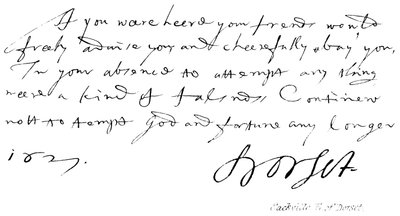 If you weare heere your frends would
freely advise you and cheerefully obay you,
In your absence to attempt any thing
weare a kind of falsnes Continew
nott to tempt God and fortune any longer
162
Dorset.
Sackville E. of Dorset.